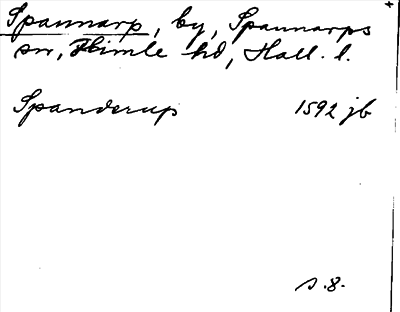 Spannarp, by, Spannarps
sn, Himle hd, Hall. l.
Spanderup 1592 jb
s. 8.